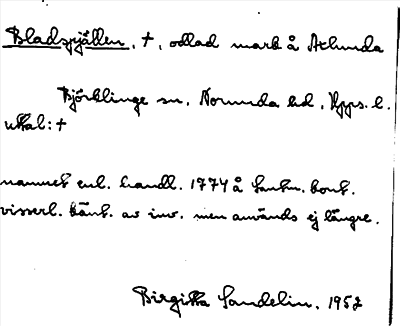 Bladspjällen, +, odlad mark å Årlunda
Björklinge sn, Norunda hd, Upps. l.
uttal: +
namnet enl. handl. 1774 å Lantm. kont.
visserl. känt av inv. men används ej längre.
Birgitta Sandelin. 1952